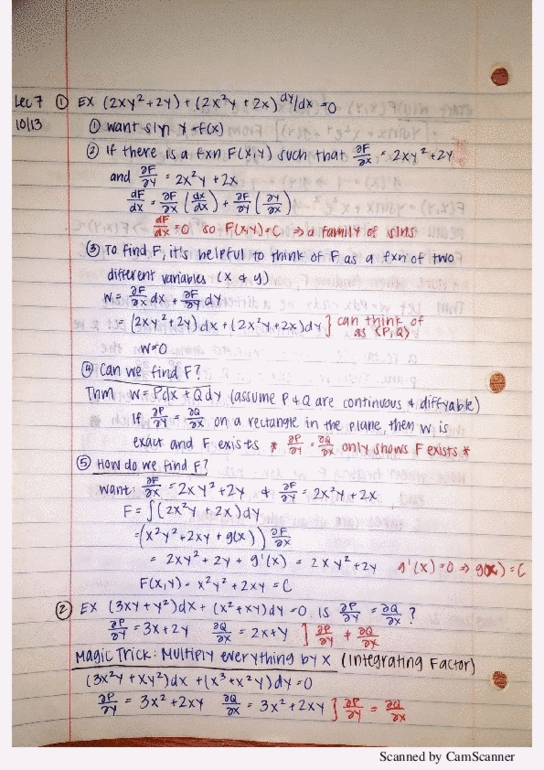 Lec 7 ① EX (2xy² + 2y) + (2x²y + 2x) dy/dx = 0
10/13 ① want sln y = f(x)
② If there is a fxn F(x,y) such that ∂F/∂x = 2xy² + 2y
and ∂F/∂y = 2x²y + 2x
dF/dx = ∂F/∂x (dx/dx) + ∂F/∂y (∂y/∂x)
dF/dx = 0 so F(x,y) = C ⇒ a family of slns
③ To find F, it's helpful to think of F as a fxn of two
different variables (x & y)
w = ∂F/∂x dx + ∂F/∂y dy
= (2xy² + 2y)dx + (2x²y + 2x)dy } can think of
as ⟨P,Q⟩
w = 0
④ Can we find F?
Thm w = Pdx + Qdy (assume P & Q are continuous & diffyable)
If ∂P/∂y = ∂Q/∂x on a rectangle in the plane, then w is
exact and F exists * ∂P/∂y = ∂Q/∂x only shows F exists *
⑤ How do we find F?
want: ∂F/∂x = 2xy² + 2y & ∂F/∂y = 2x²y + 2x
F = ∫(2x²y + 2x)dy
= (x²y² + 2xy + g(x)) ∂F/∂x
= 2xy² + 2y + g'(x) = 2xy² + 2y g'(x) = 0 ⇒ g(x) = C
F(x,y) = x²y² + 2xy = C
② EX (3xy + y²)dx + (x² + xy)dy = 0. Is ∂P/∂y = ∂Q/∂x ?
∂P/∂y = 3x + 2y ∂Q/∂x = 2x + y ] ∂P/∂y ≠ ∂Q/∂x
Magic Trick: Multiply everything by x (Integrating Factor)
(3x²y + xy²)dx + (x³ + x²y)dy = 0
∂P/∂y = 3x² + 2xy ∂Q/∂x = 3x² + 2xy } ∂P/∂y = ∂Q/∂x
Scanned by CamScanner